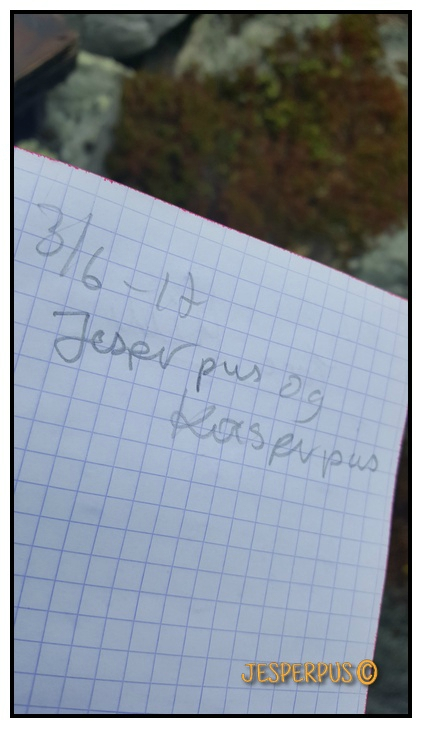 3/6-17
Jesperpus og
Kasperpus
JESPERPUS©